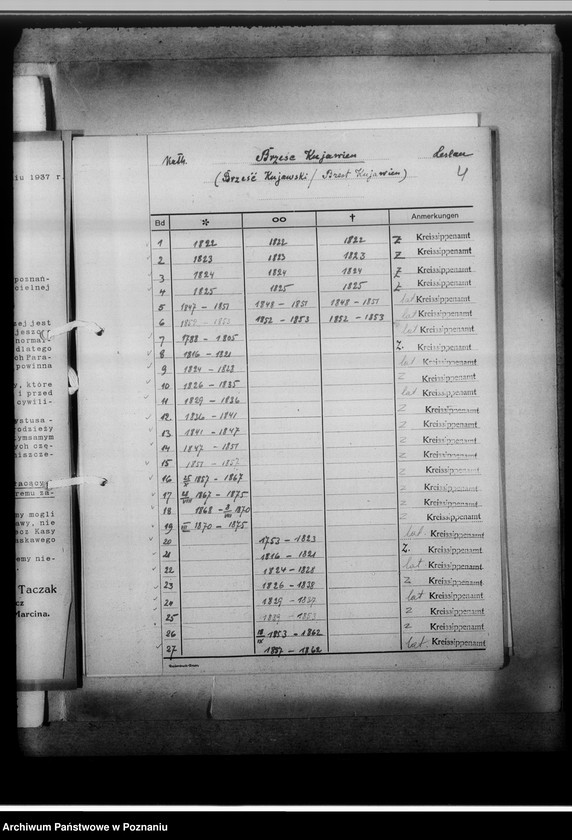 iu 1937 r.
poznań-
cielnej
zej jest
jeszcz
normar-
dlatego
ch Para-
powinna
y, które
i przed
cywili-
ystusa -
rodzieży
zymsamym
ych czę-
niaszcze-
tacącyz
remu za-
my mogli
awy, nie
oz Kasy
askawego
emy nie-
Taczak
cz
Marcina.
Kath. Brześć Kujawien Leslau
(Brześć Kujawski / Brest Kujawien) 4
Bd * ∞ † Anmerkungen
1 1822 1822 1822 Z Kreissippenamt
2 1823 1823 1823 Z Kreissippenamt
3 1824 1824 1824 Z Kreissippenamt
4 1825 1825 1825 Z Kreissippenamt
5 1847 - 1851 1848 - 1851 1848 - 1851 lat Kreissippenamt
6 1852 - 1853 1852 - 1853 lat Kreissippenamt
7 1788 - 1805 Z. Kreissippenamt
8 1816 - 1821 lat Kreissippenamt
9 1824 - 1828 Z Kreissippenamt
10 1826 - 1835 lat Kreissippenamt
11 1829 - 1836 Z Kreissippenamt
12 1836 - 1841 Z Kreissippenamt
13 1841 - 1847 Z Kreissippenamt
14 1847 - 1851 Z Kreissippenamt
15 1851 - 1857 Z Kreissippenamt
16 1857 - 1867 Z Kreissippenamt
17 1867 - 1875 Z Kreissippenamt
18 1868 - 1870 Z Kreissippenamt
19 1870 - 1875 Z Kreissippenamt
20 1753 - 1823 lat Kreissippenamt
21 1816 - 1821 Z. Kreissippenamt
22 1824 - 1828 lat Kreissippenamt
23 1826 - 1838 Z Kreissippenamt
24 1829 - 1837 lat Kreissippenamt
25 1839 - 1853 Z Kreissippenamt
26 1853 - 1862 Z Kreissippenamt
27 1857 - 1862 lat Kreissippenamt
Archiwum Państwowe w Poznaniu